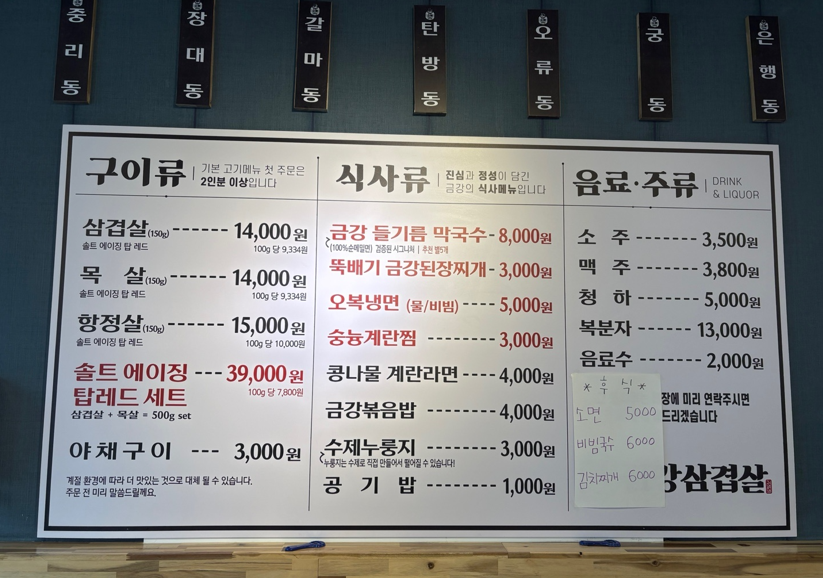 중리동
장대동
갈마동
탄방동
오류동
궁동
은행동
구이류
기본 고기메뉴 첫 주문은
2인분 이상입니다
삼겹살(150g) ------- 14,000원
솔트 에이징 탑 레드
100g 당 9,334원
목 살(150g) ------- 14,000원
솔트 에이징 탑 레드
100g 당 9,334원
항정살(150g) ------- 15,000원
솔트 에이징 탑 레드
100g 당 10,000원
솔트 에이징 --- 39,000원
탑레드 세트
100g 당 7,800원
삼겹살 + 목살 = 500g set
야채구이 --- 3,000원
계절 환경에 따라 더 맛있는 것으로 대체 될 수 있습니다.
주문 전 미리 말씀드릴께요.
식사류
진심과 정성이 담긴
금강의 식사메뉴입니다
금강 들기름 막국수 - 8,000원
(100%순메밀면) 검증된 시그니처 | 추천 별5개
뚝배기 금강된장찌개 - 3,000원
오복냉면 (물/비빔) ---- 5,000원
숭늉계란찜 ------ 3,000원
콩나물 계란라면 ---- 4,000원
금강볶음밥 ------ 4,000원
수제누룽지 ------ 3,000원
누룽지는 수제로 직접 만들어서 떨어질 수 있습니다!
공 기 밥 ------ 1,000원
음료·주류
DRINK
& LIQUOR
소 주 ------- 3,500원
맥 주 ------- 3,800원
청 하 ------- 5,000원
복분자 ------ 13,000원
음료수 ------ 2,000원
* 후 식 *
소면 5000
비빔국수 6000
김치찌개 6000
장에 미리 연락주시면
드리겠습니다
강삼겹살